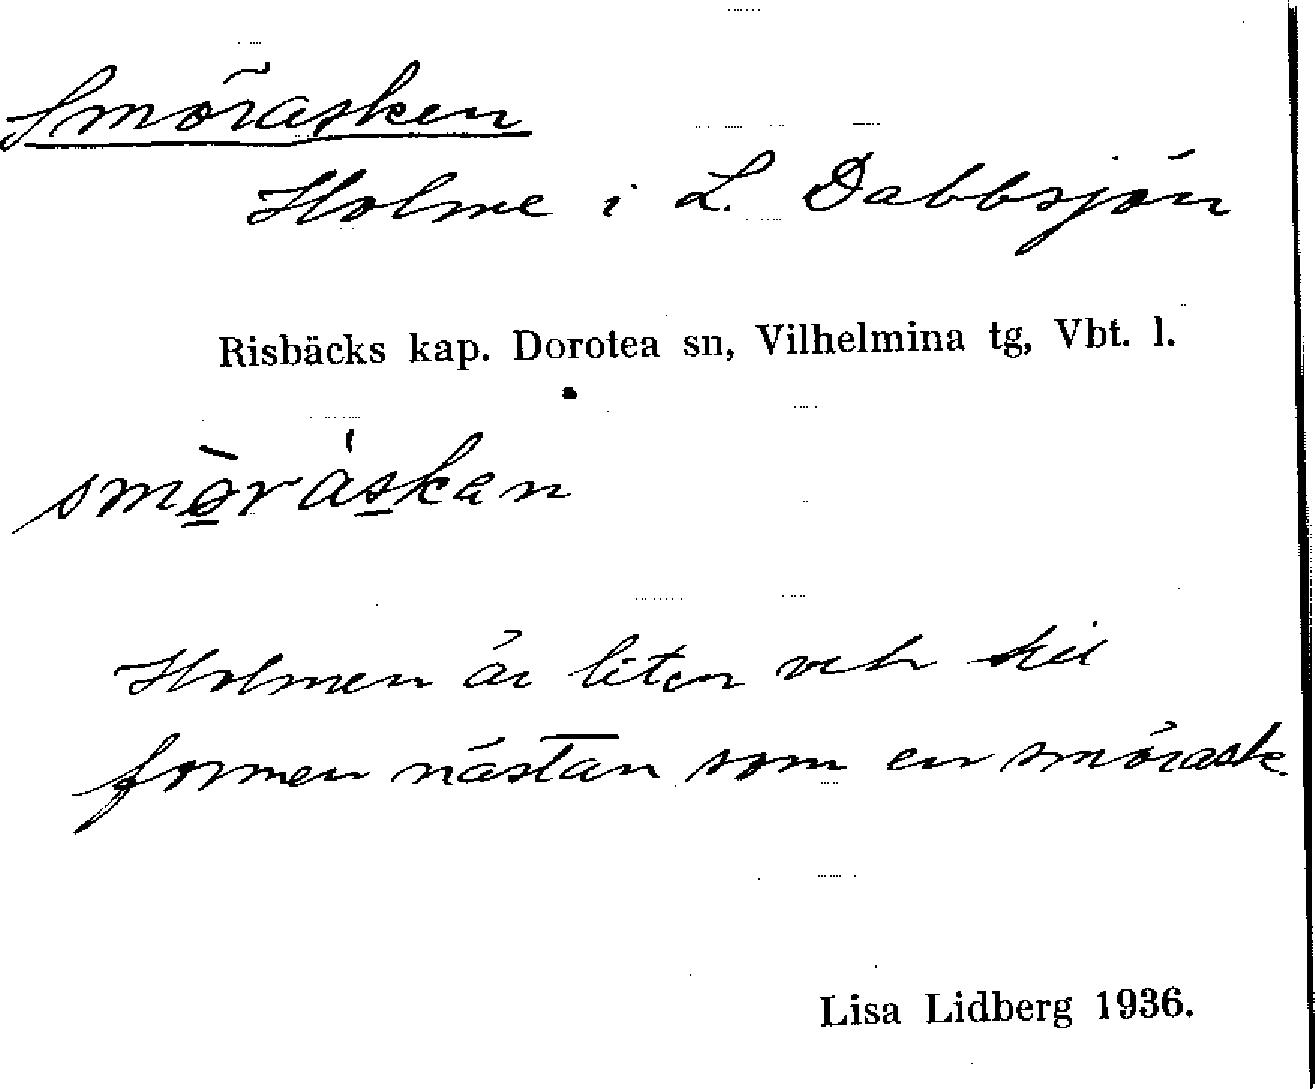 Smörasken
Holme i L. Dabbsjön
Risbäcks kap. Dorotea sn, Vilhelmina tg, Vbt. l.
smö̀ràskan
Holmen är liten och till
formen nästan som en smörask.
Lisa Lidberg 1936.